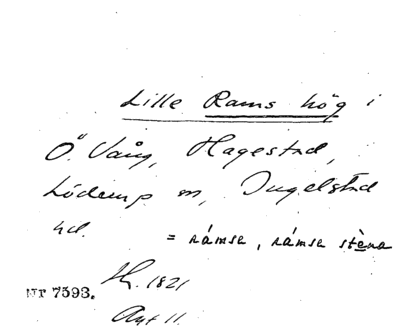 Lille Rams hög i
Ö. Vång, Hagestad,
Löderup sn, Ingelstad
hd. = rámsa, rámsa stèna
Nr 7593. 1821
Ant 11.